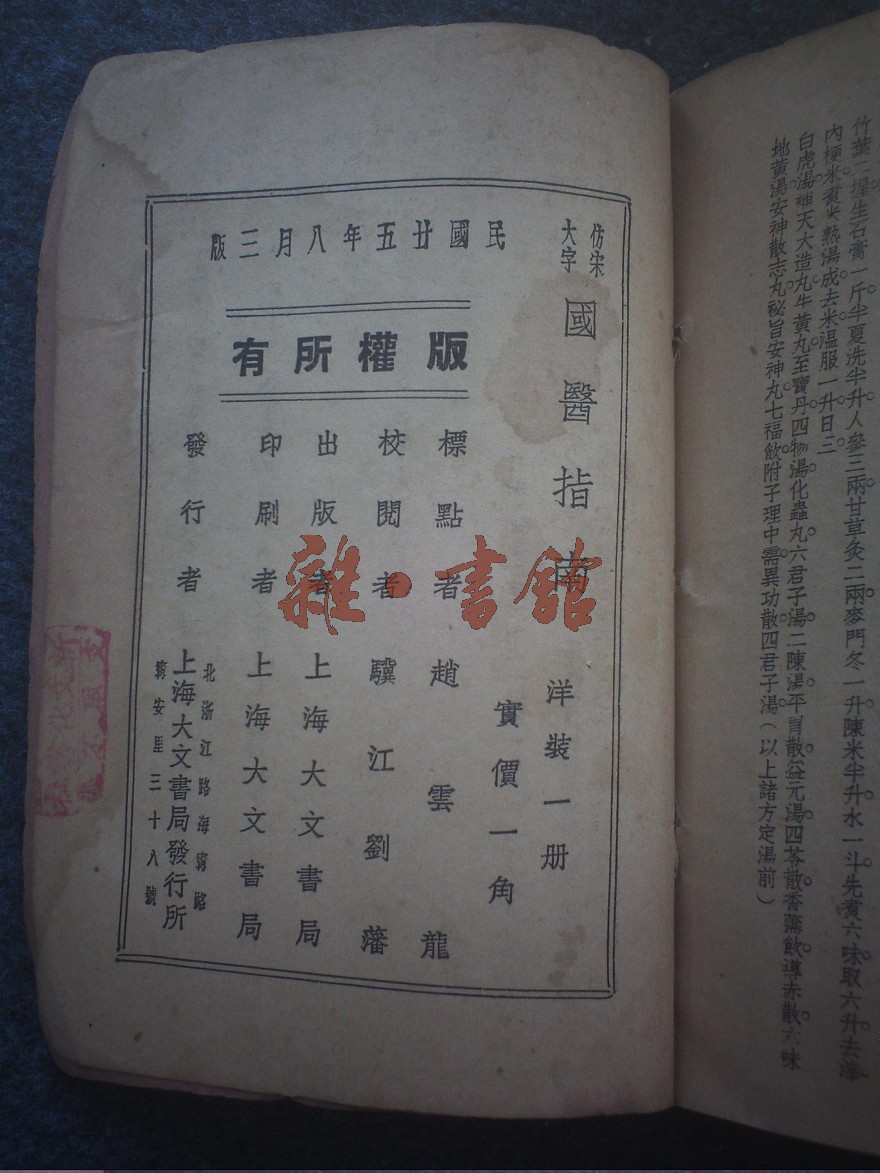 竹葉二握生石膏一斤半夏洗半升人參三兩甘草炙二兩麥門冬一升陳米半升水一斗先煮六味取六升去滓
內粳米煮米熟湯成去米溫服一升日三
白虎湯補天大造丸牛黃丸至寶丹四物湯化蟲丸六君子湯二陳湯平胃散益元湯四苓散香薷飲導赤散六味
地黃湯安神散志丸祕旨安神丸七福飲附子理中需異功散四君子湯(以上諸方定湯前)
民國廿五年八月三版
版權所有
仿宋大字
國醫指南
洋裝一册
實價一角
標點者 趙雲龍
校閱者 驥江劉藩
出版者 上海大文書局
印刷者 上海大文書局
發行者 上海大文書局發行所
北浙江路海寧路
寗安里三十八號
雜·書館